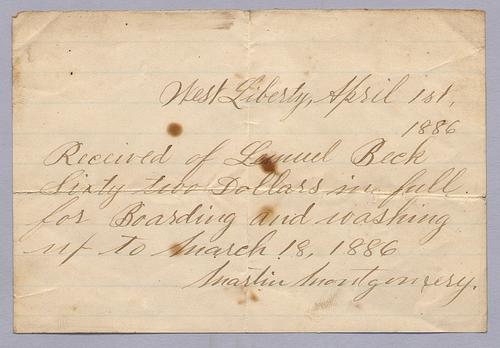 West Liberty, April 1st,
1886
Received of Lemuel Beck
Sixty two Dollars in full
for Boarding and washing
up to March 18, 1886
Martin Montgomery.